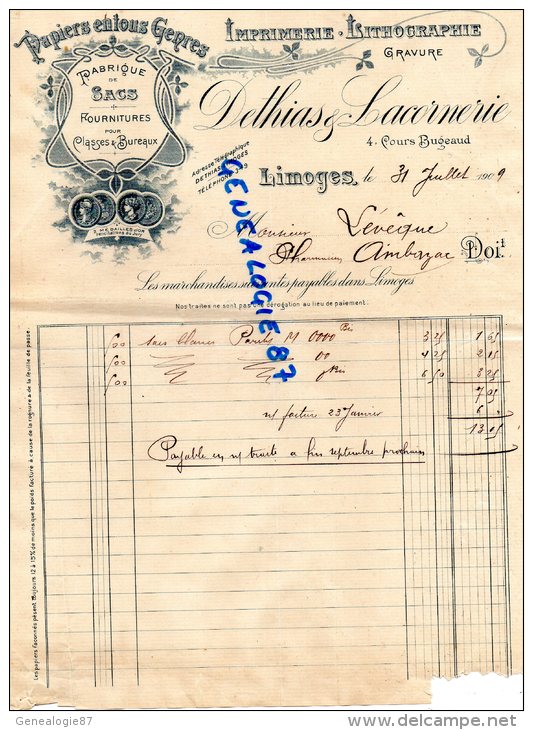 Papiers en tous Genres
Imprimerie - Lithographie
Gravure
Fabrique
de
Sacs
Fournitures
pour
Classes & Bureaux
Dethias & Lacornerie
4, Cours Bugeaud
Adresse Télégraphique
DETHIAS-LIMOGES
TÉLÉPHONE
Limoges, le 31 Juillet 1909
2 MÉDAILLES D'OR
Félicitations du Jury
Monsieur Lévêque
Pharmacien Ambazac Doit
Les marchandises suivantes payables dans Limoges
Nos traites ne sont pas une dérogation au lieu de paiement.
500 sacs blancs Pards M 0000 Bis 3 25 1 65
500 00 4 25 2 15
500 0 Bis 6 50 3 25
7 05
n/ facture 23 Janvier 6 "
13 05
Payable en n/ traite a fin septembre prochain
Les papiers faconnés pèsent toujours 12 à 15% de moins que le poids facturé à cause de la rognure & de la feuille de passe.
GENEALOGIE 87
Genealogie87
www.delcampe.net